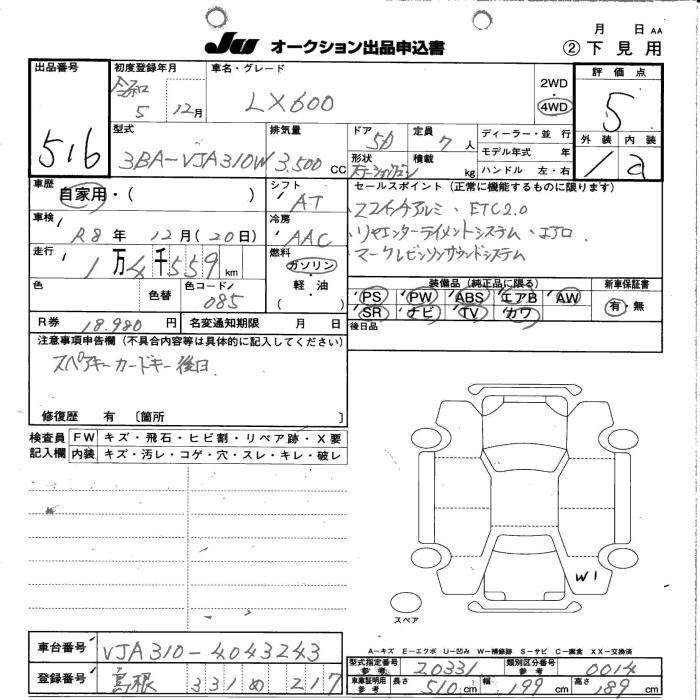 月 日 AA
JU オークション出品申込書 ② 下見用
出品番号 516
初度登録年月 令和 5 12月
車名・グレード LX600
2WD ・ 4WD
評価点 5
外装 1 内装 a
型式 3BA-VJA310W
排気量 3.500 CC
ドア 5D
定員 7 人
形状 ステーションワゴン
積載 kg
ディーラー・並 行
モデル年式 年
ハンドル 左・右
車歴 自家用・( )
シフト AT
車検 R8 年 12 月(20日)
冷房 AAC
走行 1万4千559 km
燃料 ガソリン ・ 軽油 ( )
色 色替 色コード 085
R券 18.980 円
名変通知期限 月 日
セールスポイント (正常に機能するものに限ります)
・22インチアルミ ・ETC2.0
・リヤエンターテイメントシステム ・エアロ
・マークレビンソンサウンドシステム
装備品(純正品に限る)
PS PW ABS エアB AW
SR ナビ TV カワ
新車保証書 有・無
後日品
注意事項申告欄(不具合内容等は具体的に記入してください)
スペアキー カードキー 後日
修復歴 有 〔箇所 〕
検査員記入欄
FW キズ・飛石・ヒビ割・リペア跡・X要
内装 キズ・汚レ・コゲ・穴・スレ・キレ・破レ
W1
スペア
A―キズ E―エクボ U―凹み W―補修跡 S―サビ C―腐食 XX―交換済
車台番号 VJA310-4043243
登録番号 島根 331 め 217
型式指定番号 参考 20331
類別区分番号 参考 0014
車庫証明用 参考 長さ 510 cm 幅 199 cm 高さ 189 cm